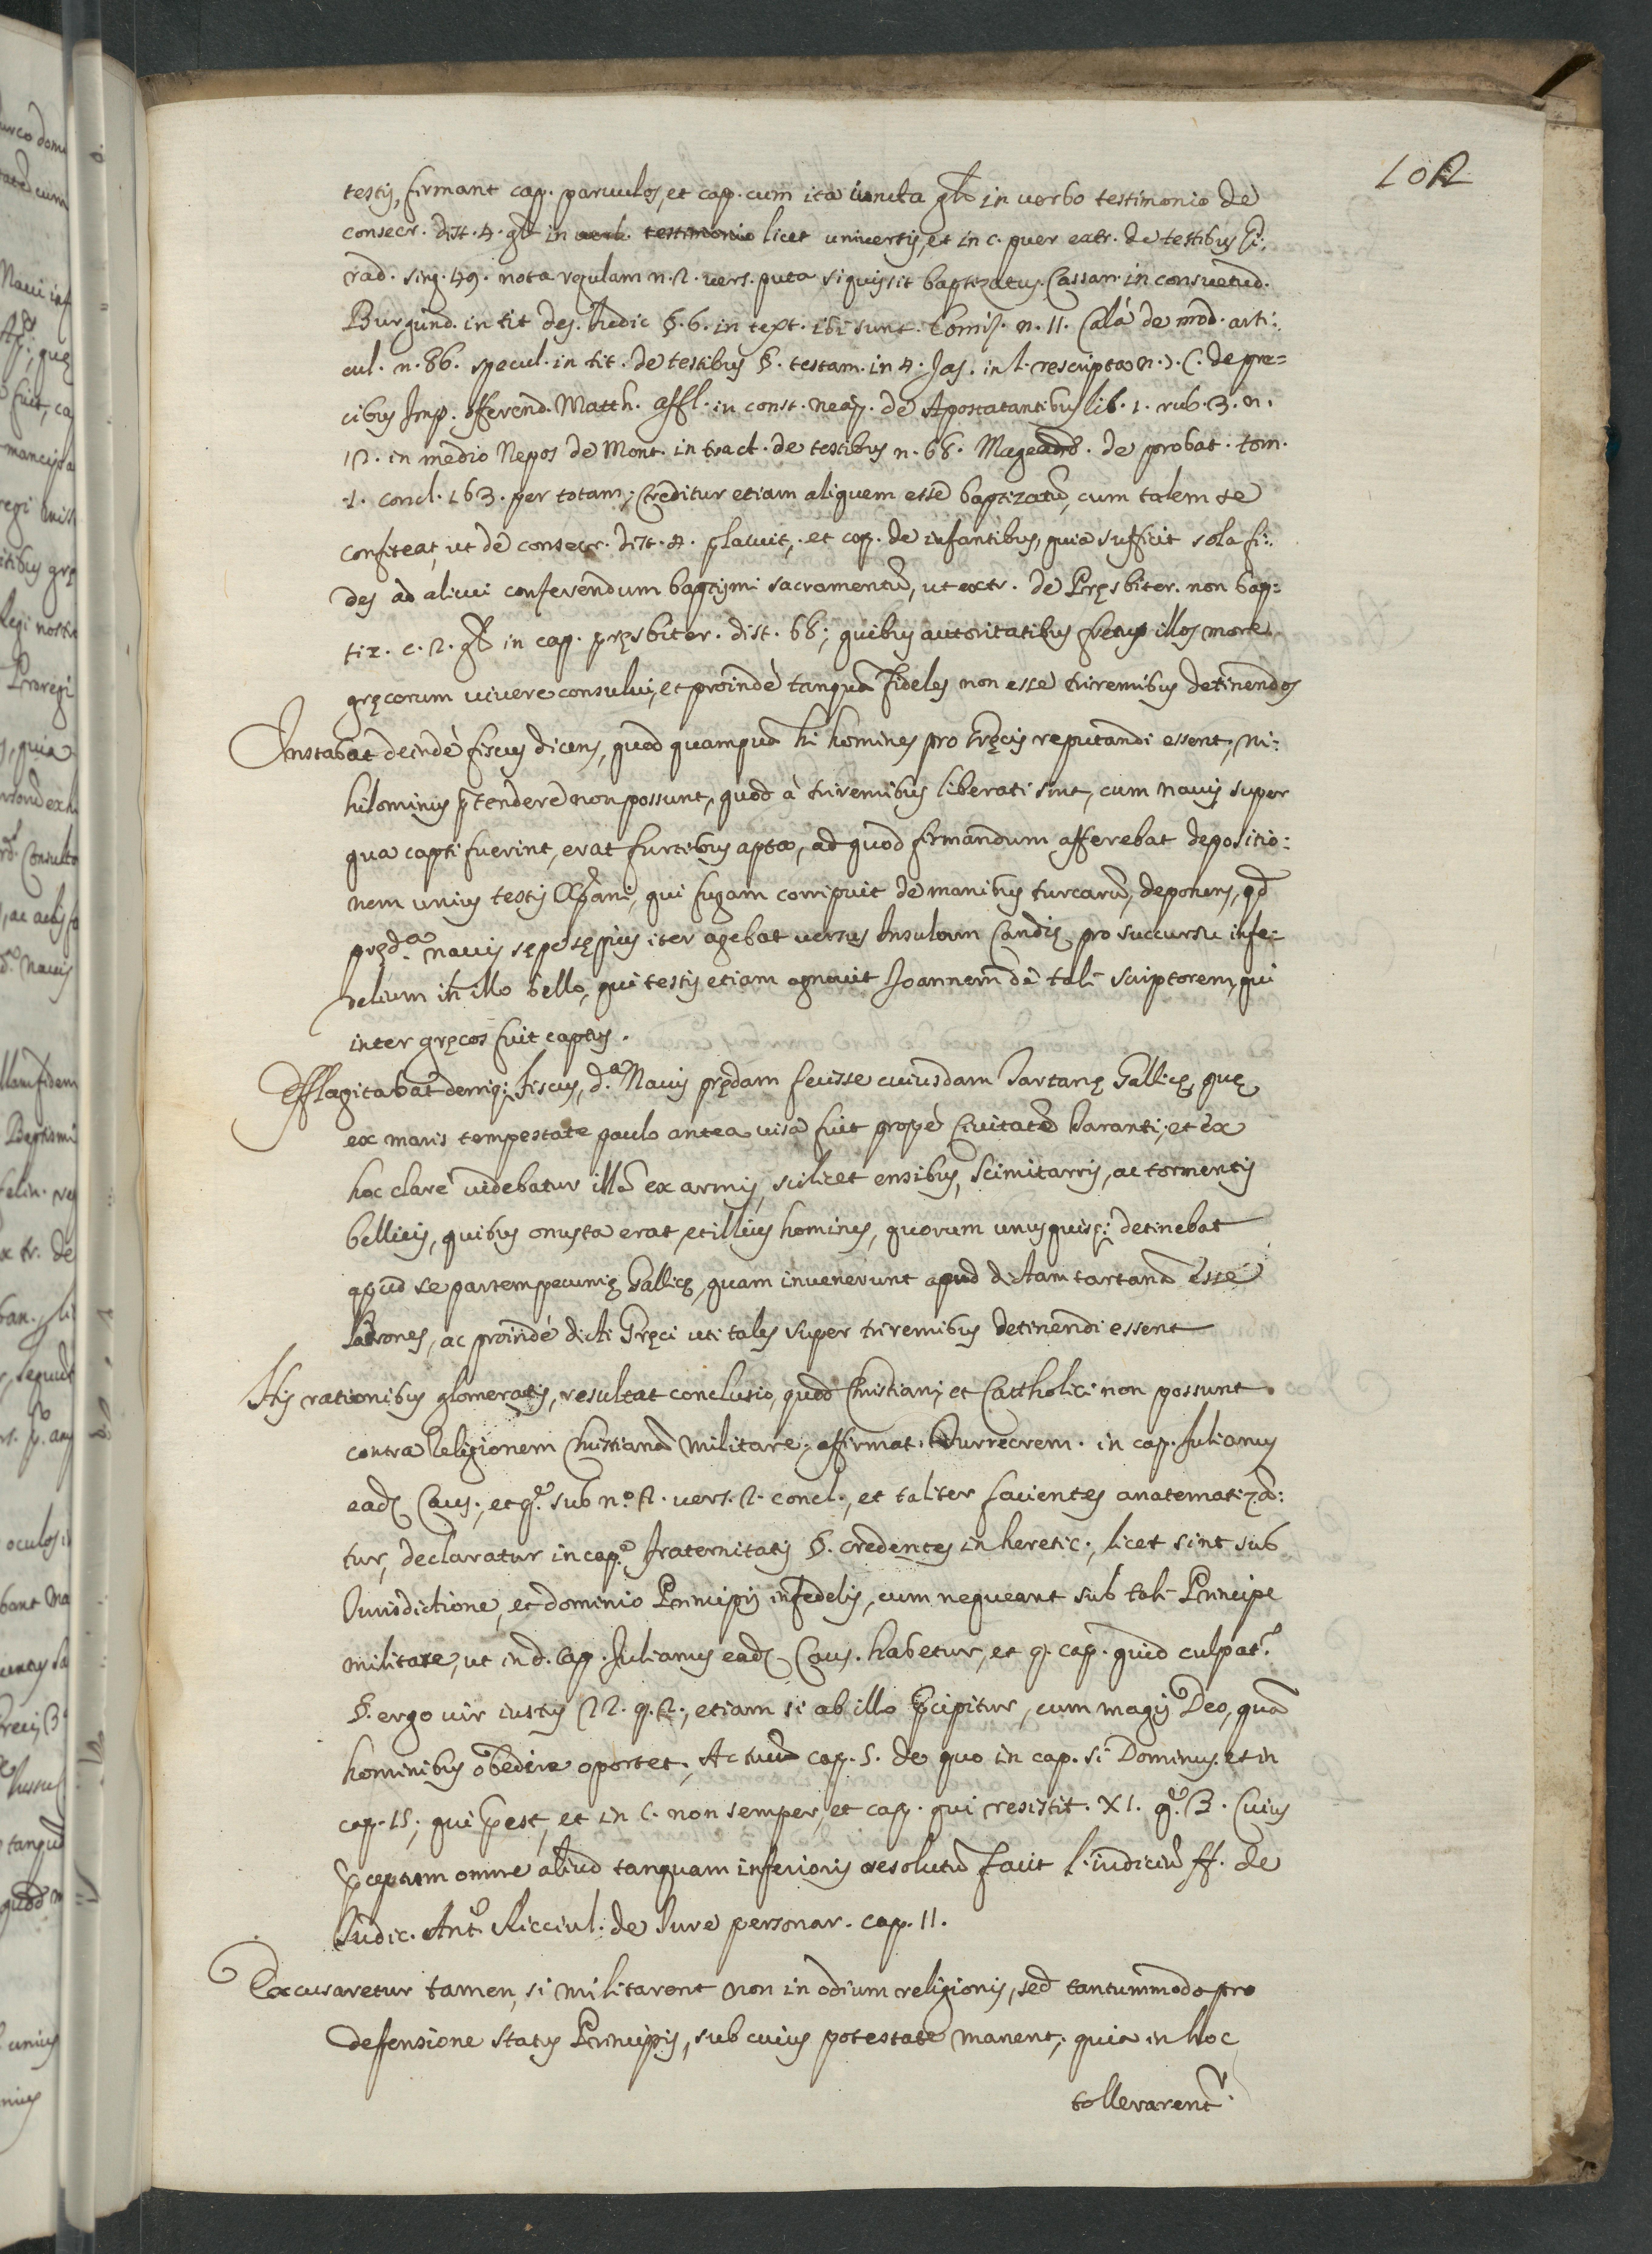 102
testis, firmant cap. paruulos, et cap. cum ita iuncta gl. in uerbo testimonio de
consecr. dist. 4. gl. in licet universis, et in c. puer extr. de testibus
rad. sing. 49. nota regulam n. 2. uers. puta si quis sit baptizatus. Cassan. in consuetud.
Burgund. in tit des. Iudic §. 6. in text. ibi sunt. Comis. n. 11. Calà de mod. arti:
cul. n. 86. specul. in tit. de testibus §. testam. in 4. Jas. in l. rescripta n. C. de pre=
cibus Imp. offerend. Matth. affl. in const. neap. de Apostatantibus lib. 1. rub. 3. n.
12. in medio Nepos de Mont. in tract. de testibus n. 68. de probat. tom.
1. concl. 163. per totam; Creditur etiam aliquem esse baptizatũ, cum talem se
confiteat, ut de consecr. dist. 4. placuit, et cap. de infantibus, quia sufficit sola fi:
des ad alicui conferendum baptismi sacramentũ, ut extr. de Pręsbiter. non bap:
tiz. c. 2. gl. in cap. pręsbiter. dist. 68; quibus autoritatibus fretus illos more
gręcorum uiuere consului, et proindè tanquã fideles non esse triremibus detinendos
Instabat deindè fiscus dicens, quod quamquã hi homines pro Gręcis reputandi essent, ni:
hilominus ptendere non possunt, quod à triremibus liberati sint, cum nauis super
qua capti fuerint, erat furtibus apta, ad quod firmandum afferebat depositio:
nem unius testis Xpani, qui fugam corripuit de manibus turcarũ, deponens, qd
pręd.ª nauis sępe sępius iter agebat uersus Insulam Candię pro succursu infe:
delium in illo bello, qui testis etiam agnouit Joannem de tali scriptorem, qui
inter gręcos fuit captus.
Efflagitabat deniq; fiscus, d.ª Nauis prędam fecisse cuiusdam Tartanę Gallicę, quę
ex maris tempestate paulo antea uisa fuit propè Ciuitatẽ Taranti; et ex
hoc clarè uidebatur illã ex armis, scilicet ensibus, scimitarris, ac tormentis
bellicis, quibus onusta erat, et illius homines, quorum unusquisq; detinebat
apud se partem pecunię Gallicę, quam inuenerunt apud dictam tartanã esse
latrones, ac proindè dicti Gręci uti tales super triremibus detinendi essent
His rationibus glomeratis, resultat conclusio, quod Christiani, et Cattholici non possunt
contra Religionem Christianã militare; affirmat Turrecrem. in cap. Julianus
ead. Caus., et q. sub n.º 2. uers. 2. concl., et taliter facientes anatematizã:
tur, declaratur in cap.º fraternitatis §. credentes in heretic., licet sint sub
Iurisdictione, et dominio Principis infedelis, cum nequeant sub tali Principe
militare, ut in d. cap. Julianus ead. Caus. habetur, et q. cap. quid culpat.
§. ergo uir iustus 22. q. 2., etiam si ab illo pcipitur, cum magis Deo, quã
hominibus obedire oportet, Actuũ cap. 5. de quo in cap. si Dominus. et in
cap. 15; qui pest, et in c. non semper, et cap. qui resistit. XI. q. 3. Cuius
pceptum omne aliud tanquam inferioris resolutũ facit l. iudiciũ ff. de
Iudic. Ant. Ricciul. de Iure personar. cap. 11.
Excusaretur tamen, si militarent non in odium religionis, sed tantummodo pro
defensione status Principis, sub cuius potestate manent; quia in hoc
tollerarent.